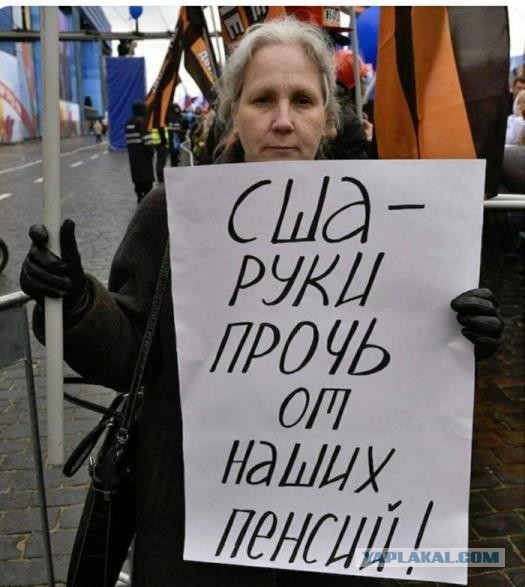 США -
РУКИ
ПРОЧЬ
ОТ
НАШИХ
ПЕНСИЙ!
YAPLAKAL.COM